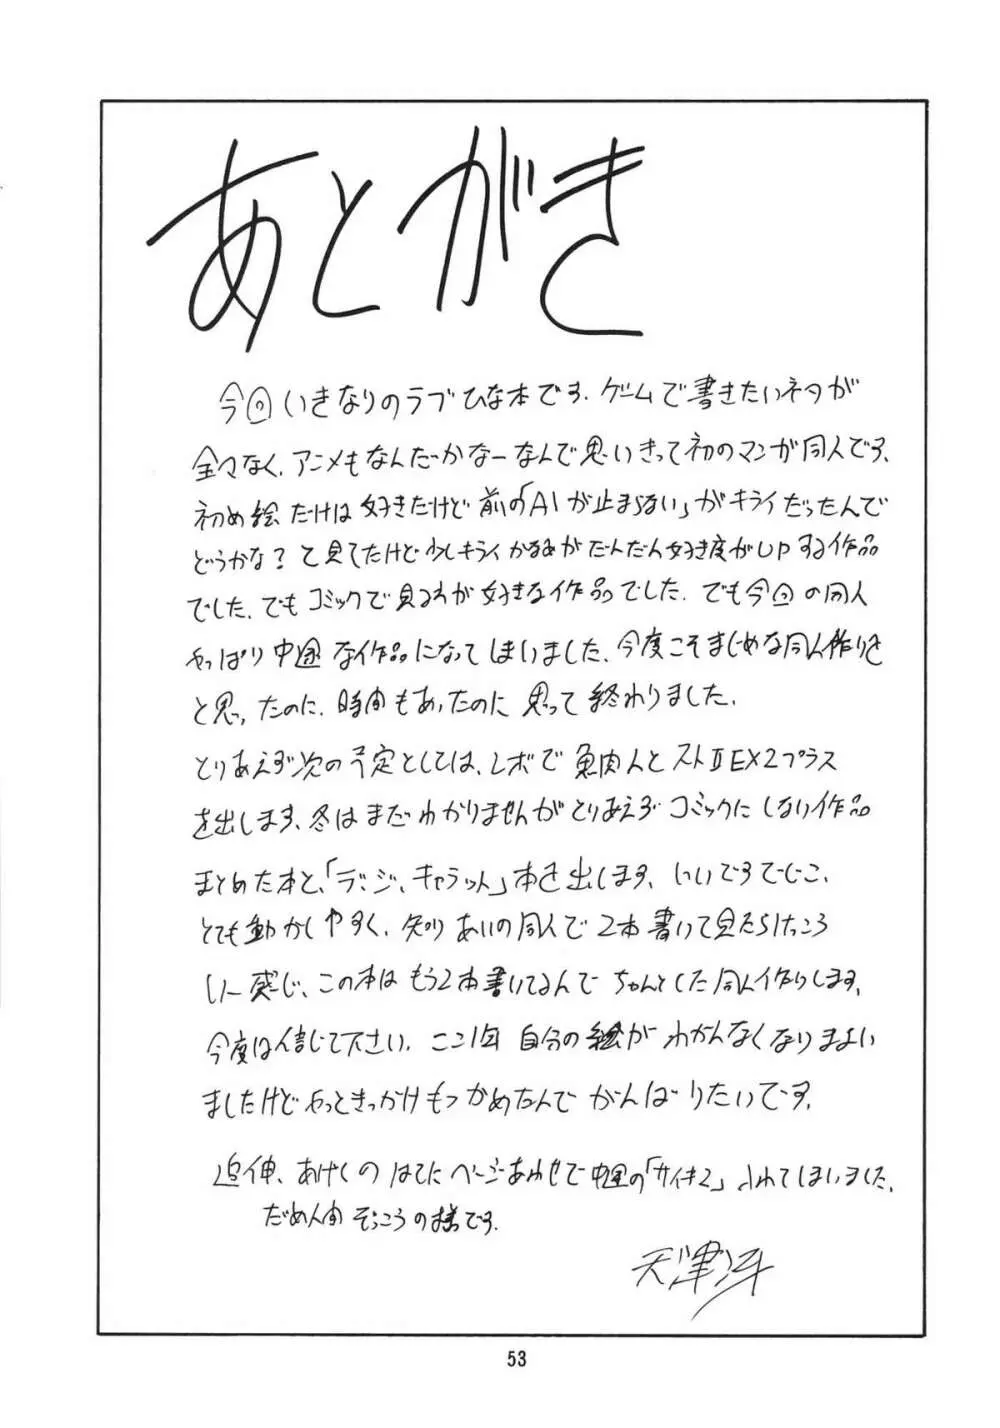 あとがき
今回いきなりのラブひな本です.ゲームで書きたいネタが
全々なく、アニメもなんだかなーなんで思いきって初のマンガ同人です、
初め絵だけは好きだけど前の「AIが止まらない」がキライだったんで
どうかな？と見てたけど少しキライかるみがだんだん好き度がUPする作品
でした.でもコミックで見るのが好きな作品でした.でも今回の同人
やっぱり中途な作品になってしまいました、今度こそまじめな同人作りを
と思ったのに、時間もあったのに思って終わりました.
とりあえず次の予定としては、レボで魚肉人とストⅡEX2プラス
を出します、冬はまだわかりませんがとりあえずコミックにしない作品
まとめた本と、「デ・ジ・キャラット」本を出します、いいですでじこ、
とても動かしやすく、知りあいの同人で2本書いて見たらけっこう
いい感じ、この本はもう2本書いてるんでちゃんとした同人作りします、
今度は信じて下さい.ここ1年自分の絵がわかんなくなりまよい
ましたけどやっときっかけもつかめたんでがんばりたいです.
追伸、あげくのはてにページあわせで中途の「サイキ2」入れてしまいました.
だめ人間ぞっこうの様です.
天津冴
53